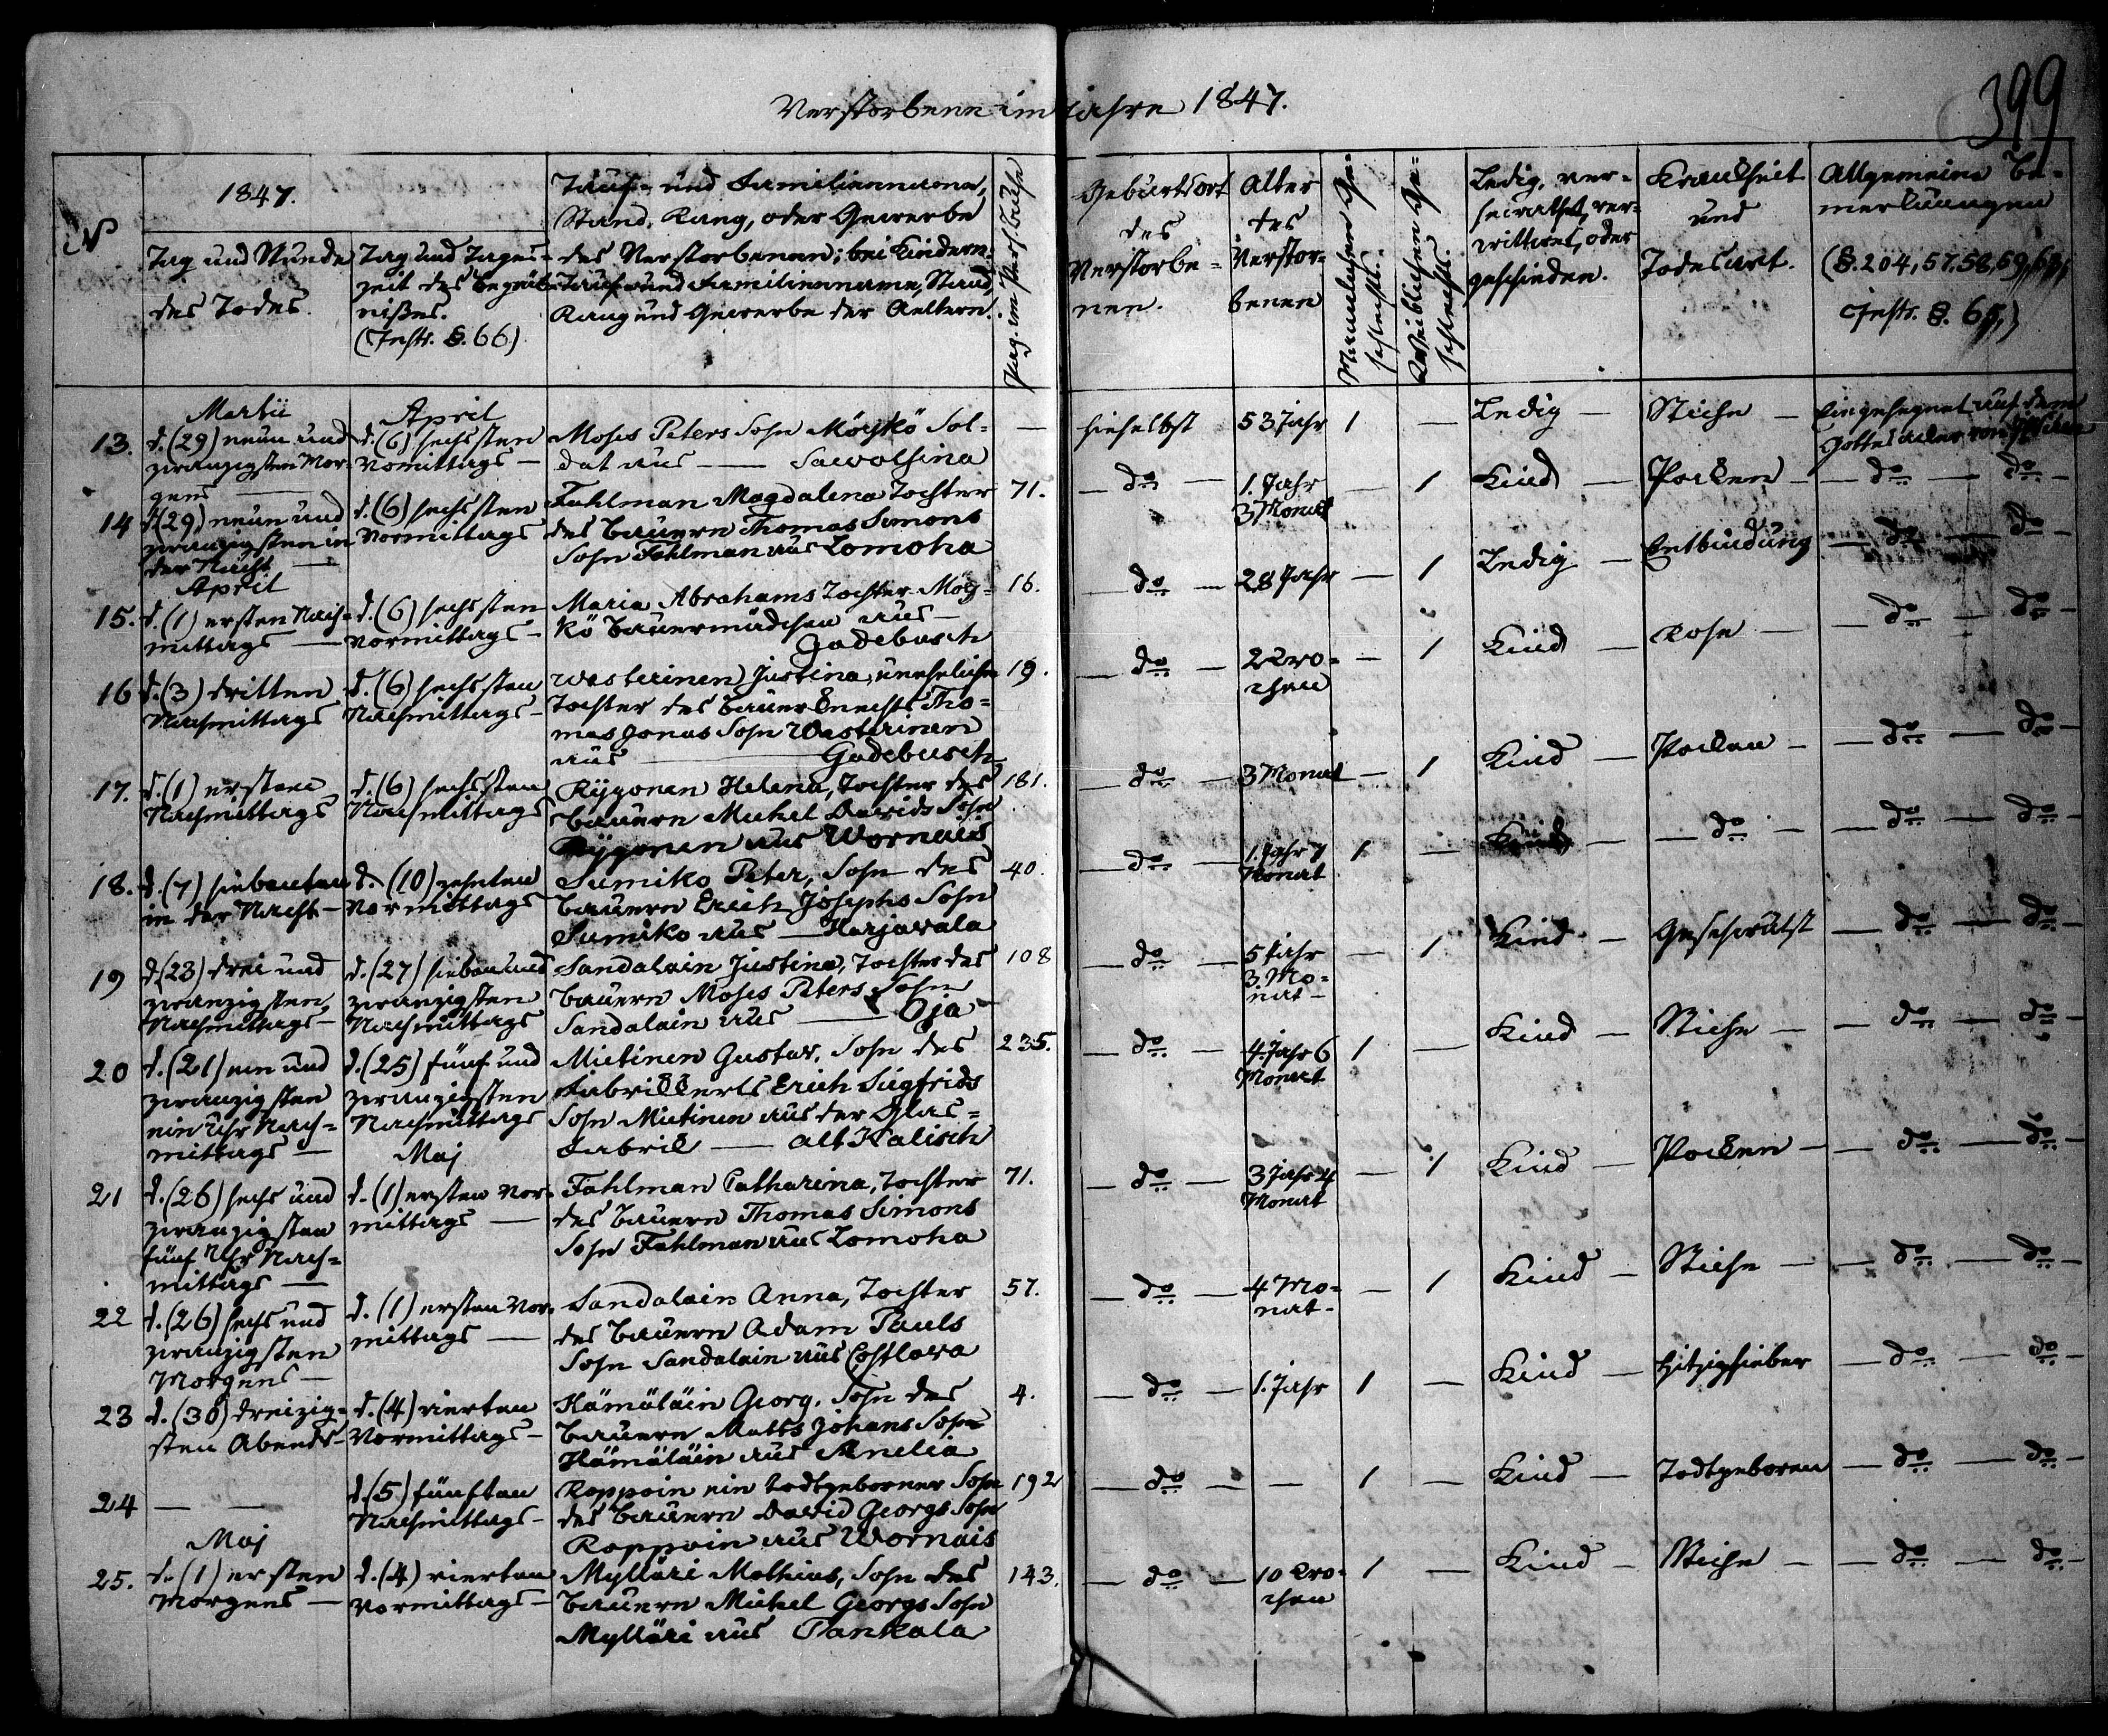 399
Verstorbene im Jahre 1847.
N
1847.
Tag und Stunde
des Todes.
Tag und Tages-
zeit des Begräb-
nißes.
(Instr. §. 66)
Tauf- und Familienname,
Stand, Rang, oder Gewerbe
des Verstorbenen; bei Kindern:
Tauf- und Familienname, Stand,
Rang und Gewerbe der Aeltern.
Pag. im Pers. Buche
Geburtsort
des
Verstorbe-
nen.
Alter
des
Verstor-
benen
Männlichen Ge-
schlechts.
Weiblichen Ge-
schlechts.
Ledig, ver-
heirathet, ver-
wittwet, oder
geschieden.
Krankheit
und
Todesart.
Allgemeine Be-
merkungen
(§. 204, 57. 58, 59,
Instr. §. 65,)
Martii
April
13. d. (29) neun und
zwanzigsten Mor-
gens —
d. (6) sechsten
Vormittags —
Moses Peters Sohn Möykö Sol-
dat aus — Sawolsina
—
hieselbst
53 Jahr
1
—
Ledig —
Stiche —
Eingesegnet auf dem
Gottesacker von
14 d. (29) neun und
zwanzigsten in
der Nacht —
d. (6) sechsten
Vormittags
Fahlman Magdalena Tochter
des Bauern Thomas Simons
Sohn Fahlman aus Lomoha
71.
— do —
1. Jahr
3 Monat
—
1
Kind —
Pocken —
— do — do —
April
15. d. (1) ersten Nach-
mittags —
d. (6) sechsten
Vormittags —
Maria Abrahams Tochter Möy-
kö Bauermädchen aus —
Gadebusch
16.
— do —
28 Jahr
—
1
Ledig —
Entbindung
— do — do —
16 d. (3) dritten
Nachmittags
d. (6) sechsten
Nachmittags —
Westerinen Justina, uneheliche
Tochter des Bauerknechts Tho-
mas Jonas Sohn Westerinen
aus — Gadebusch
19.
— do —
2 Wo-
chen
—
1
Kind —
Rose —
— do — do —
17. d. (1) ersten
Nachmittags
d. (6) sechsten
Nachmittags
Ryygonen Helena, Tochter des
Bauern Michel Davids Sohn
Ryygonen aus Wornais
181.
— do —
3 Monat
—
1
Kind —
Pocken —
— do — do —
18. d. (7) siebenten
in der Nacht —
d. (10) zehnten
Vormittags
Sumiko Peter, Sohn des
Bauern Erich Josephs Sohn
Sumiko aus — Harjawala
40.
— do —
1. Jahr 7
Monat
1
—
Kind —
— do —
— do — do —
19 d. (23) drei und
zwanzigsten
Nachmittags —
d. (27) sieben und
zwanzigsten
Nachmittags
Sandalain Justina, Tochter des
Bauern Moses Peters Sohn
Sandalain aus — Oja
108
— do —
5 Jahr
3. Mo-
nat —
—
1
Kind —
Geschwulst
— do — do —
20 d. (21) ein und
zwanzigsten
ein Uhr Nach-
mittags —
d. (25) fünf und
zwanzigsten
Nachmittags
Mietinen Gustav, Sohn des
Fabrikkerls Erich Siegfrids
Sohn Mietinen aus der Glas-
Fabrik — alt Kalisch
235.
— do —
4. Jahr 6
Monat
1
—
Kind —
Stiche —
— do — do —
Maj
21 d. (26) sechs und
zwanzigsten
fünf Uhr Nach-
mittags —
d. (1) ersten Vor-
mittags —
Fahlman Catharina, Tochter
des Bauern Thomas Simons
Sohn Fahlman aus Lomoha
71.
— do —
3 Jahr 4
Monat
—
1
Kind —
Pocken —
— do — do —
22 d. (26) sechs und
zwanzigsten
Morgens —
d. (1) ersten Vor-
mittags —
Sandalain Anna, Tochter
des Bauern Adam Pauls
Sohn Sandalain aus Costlowa
57.
— do —
4 Mo-
nat —
—
1
Kind —
Stiche —
— do — do —
23 d. (30) dreizig-
sten Abends —
d. (4) vierten
Vormittags —
Hämäläin Georg, Sohn des
Bauern Matts Johans Sohn
Hämäläin aus Anelia
4.
— do —
1. Jahr
1
—
Kind —
Hitzigfieber
— do — do —
24 — —
d. (5) fünften
Nachmittags —
Roppoin ein todtgeborner Sohn
des Bauern David Georgs Sohn
Roppoin aus Wornais
192
— do —
—
1
—
Kind —
Todtgeboren
— do — do —
Maj
25. d. (1) ersten
Morgens —
d. (4) vierten
Vormittags —
Mylläri Mathias, Sohn des
Bauern Michel Georgs Sohn
Mylläri aus Pankala
143.
— do —
10 Wo-
chen
1
—
Kind —
Stiche —
— do — do —